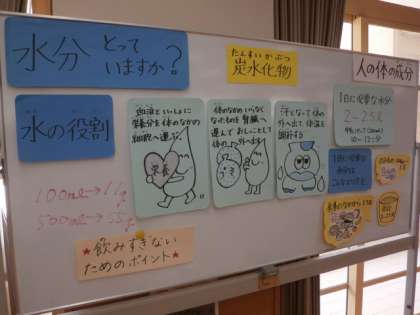 水分 とって
いますか?
たんすいかぶつ
炭水化物
人の体の成分
水の役割
血液といっしょに
栄養分を体のなかの
細胞へ運ぶ。
栄養
体のなかのいらなく
なったものを腎臓へ
運んでおしっことして
体の外へ出す
汗となって体の
外へ出て体温を
調節する
1日に必要な水分
2~2.5ℓ
1日に必要な
水分は
100ml→11g
500ml→55g
★飲みすぎない★
ためのポイント